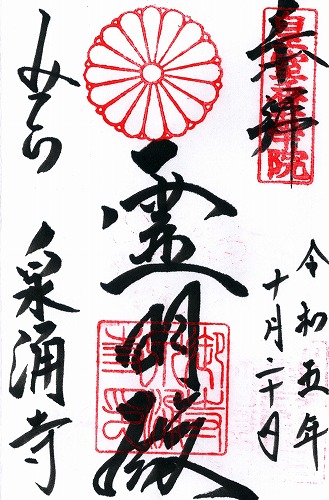 奉拝
皇室香華院
令和五年
十月二十日
霊明殿
みてら
泉涌寺